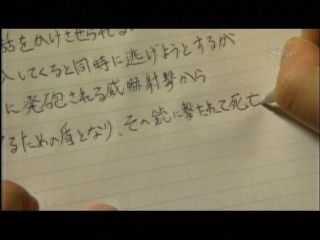 話をかけさせられる
入してくると同時に逃げようとするが
に発砲される威嚇射撃から
るための盾となり、その銃に撃たれて死亡